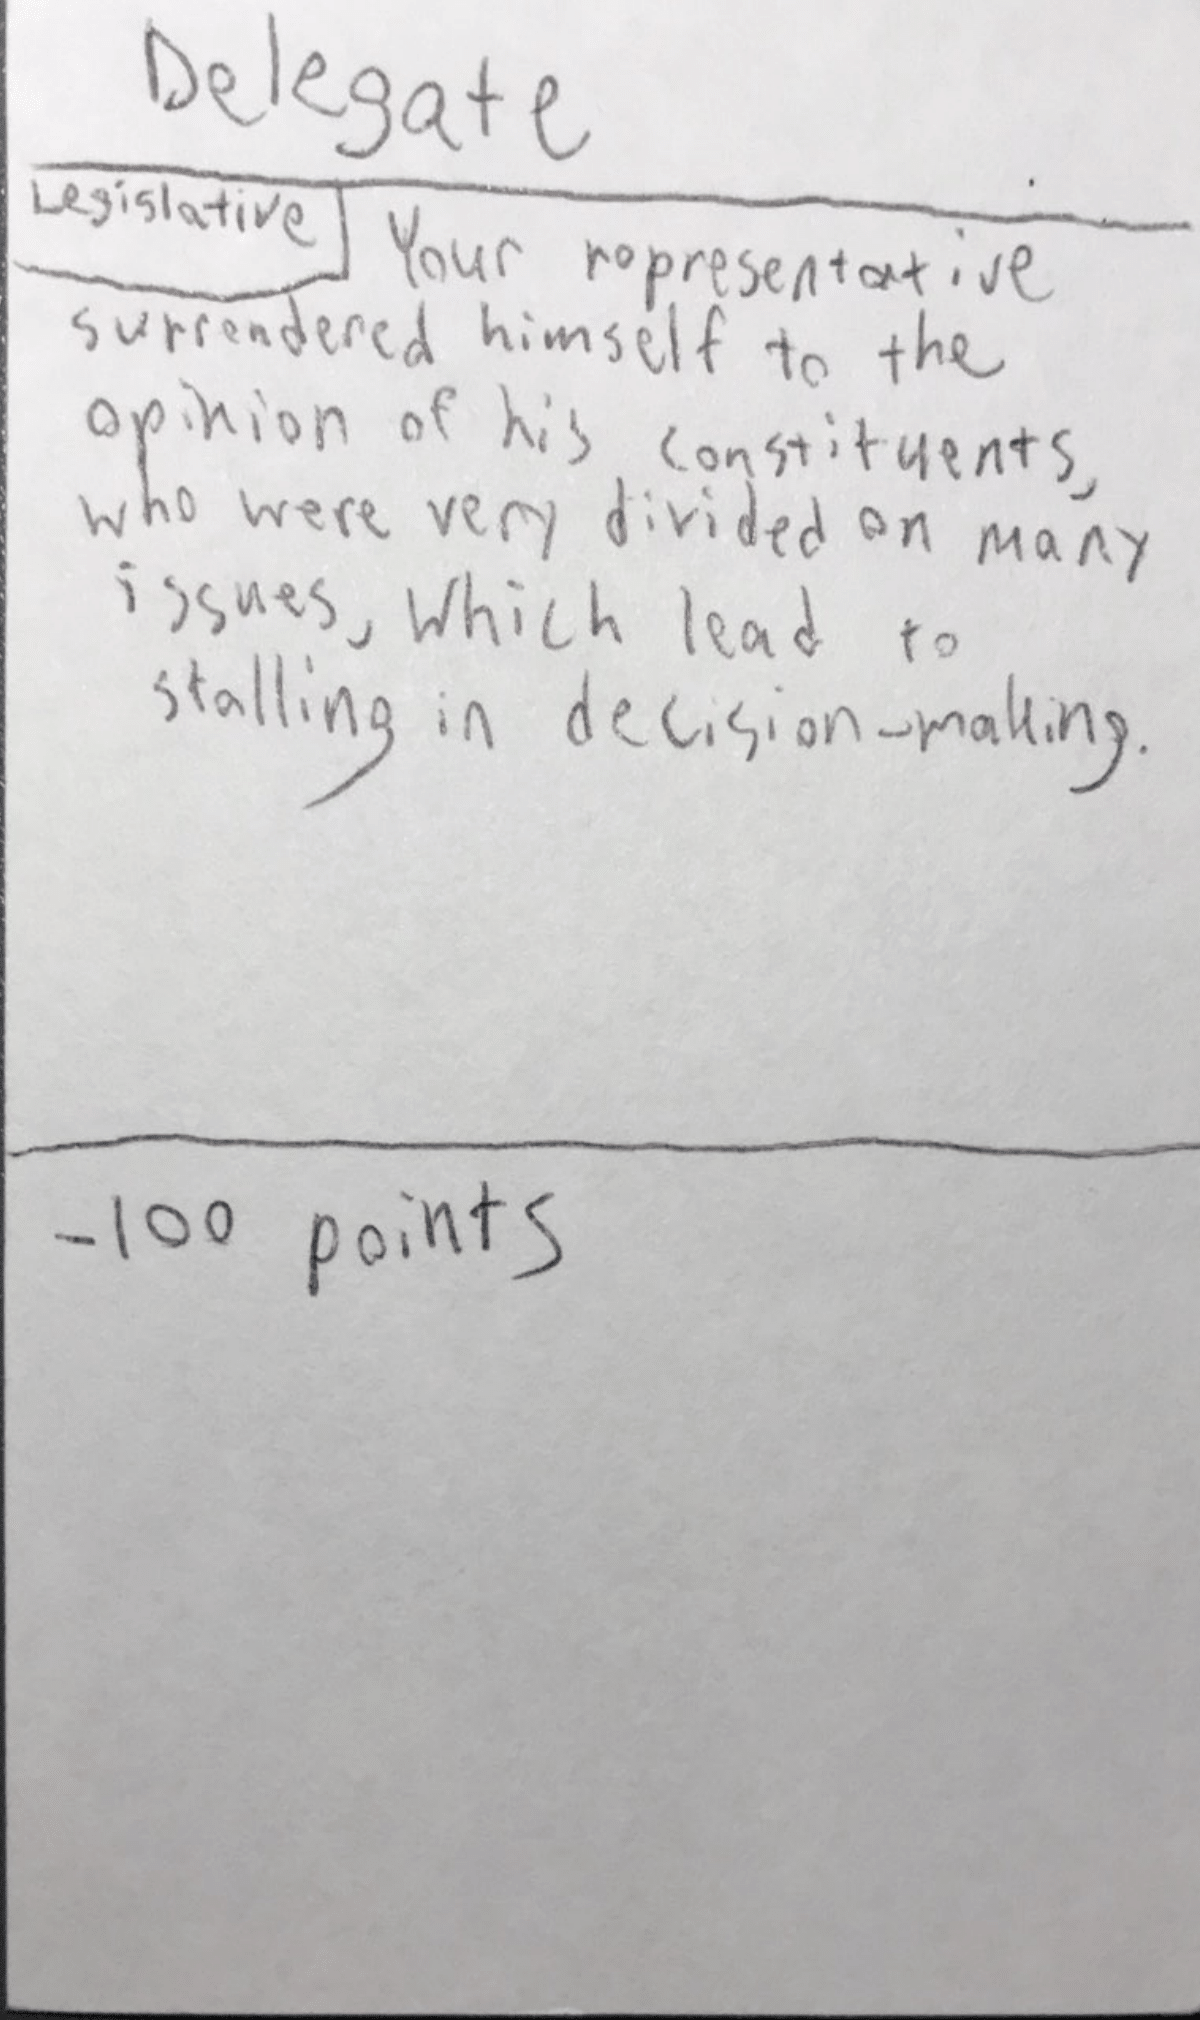 Delegate
Legislative
Your representative
surrendered himself to the
opinion of his constituents,
who were very divided on many
issues, which lead to
stalling in decision-making.
-100 points